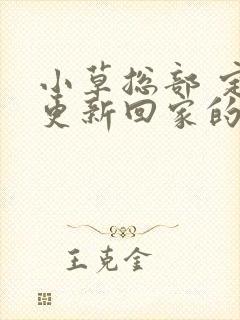 小草总部
更新回家的
王克金